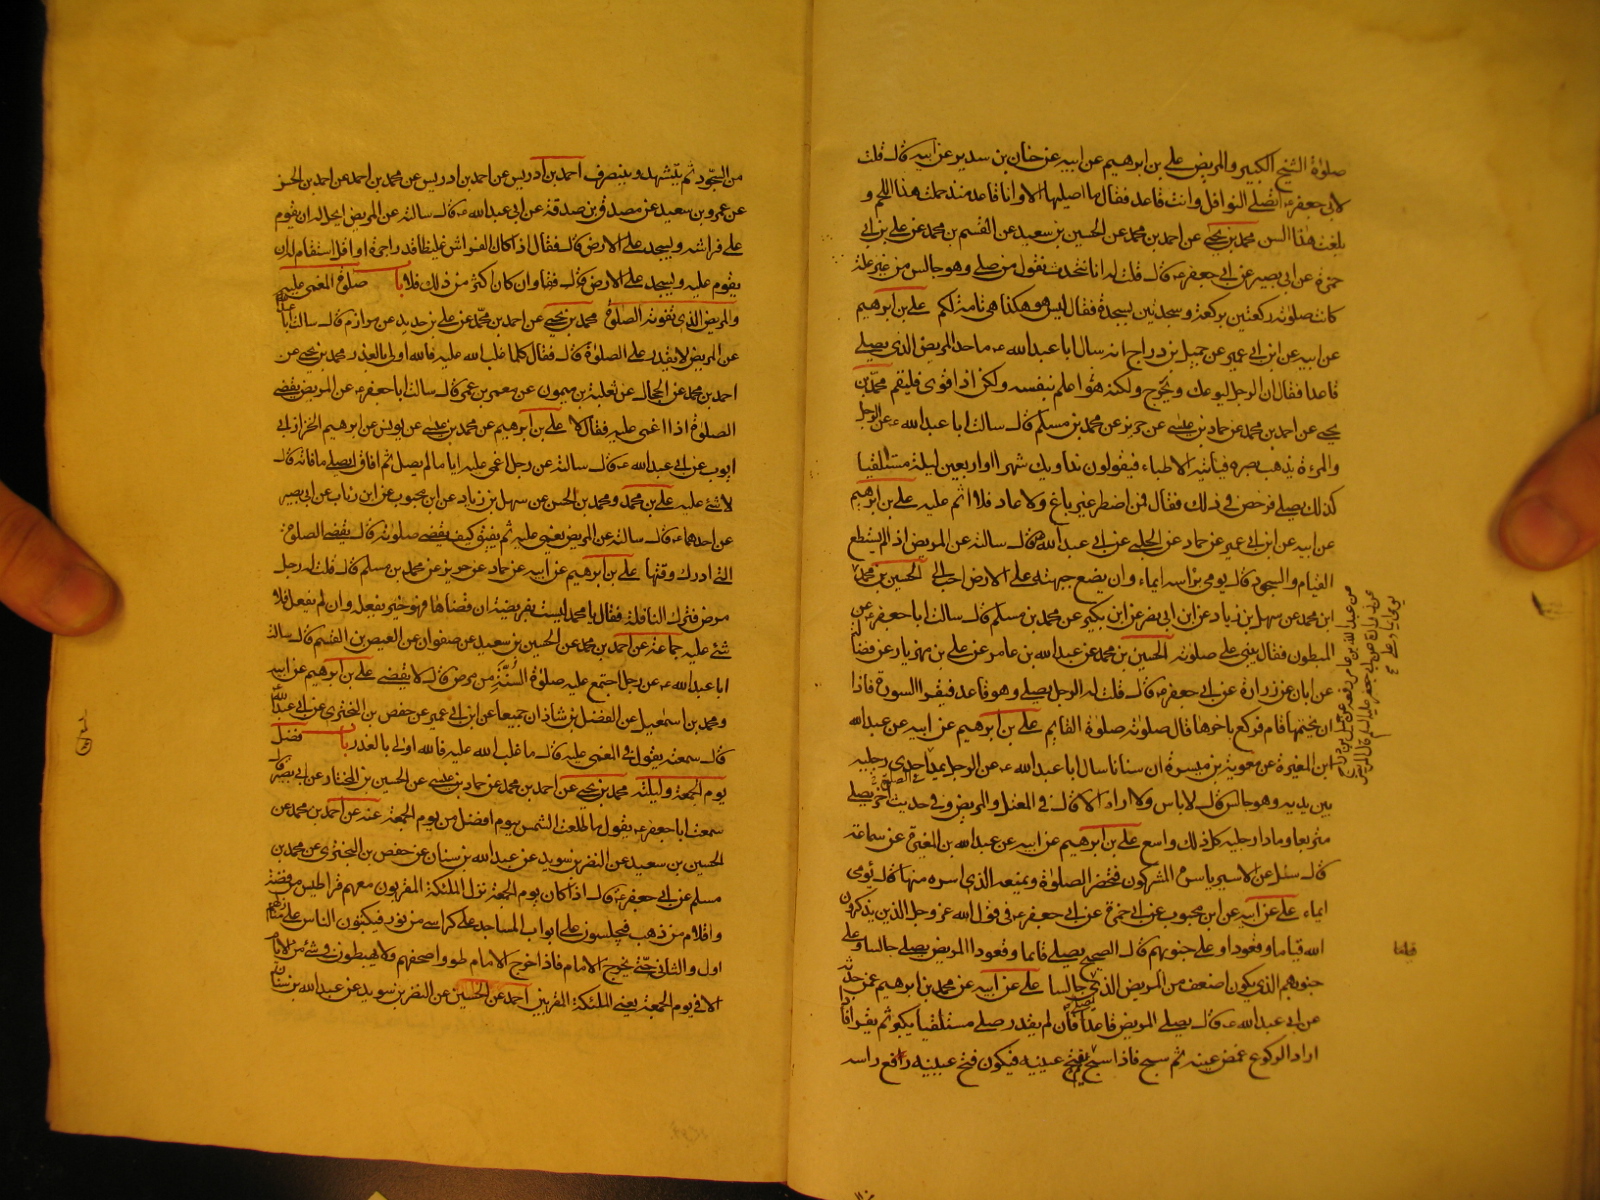 صلوة الشيخ الكبير والمريض علي بن ابرهيم عن ابيه عن حنان بن سدير عن ابيه قال قلت
لابي جعفر ع اتصلي النوافل وانت قاعد فقال ما اصليها الا وانا قاعد منذ حملت هذا اللحم و
بلغت هذا السن محمد بن يحيى عن احمد بن محمد عن الحسين بن سعيد عن القسم بن محمد عن علي بن ابي
حمزة عن ابي بصير عن ابي جعفر ع قال قلت له انا نتحدث نقول من صلى وهو جالس من غير علة
كانت صلوته ركعتين بركعة وسجدتين بسجدة فقال ليس هو هكذا هي تامة لكم علي بن ابرهيم
عن ابيه عن ابن ابي عمير عن جميل بن دراج انه سال ابا عبد الله ع ما حد المريض الذي يصلي
قاعدا فقال ان الرجل ليوعك ويحرج ولكنه هو اعلم بنفسه ولكن اذا قوى فليقم محمد بن
يحيى عن احمد بن محمد عن حماد بن عيسى عن حريز عن محمد بن مسلم قال سالت ابا عبد الله ع عن الرجل
والمرءة يذهب بصره فياتيه الاطباء فيقولون نداويك شهرا او اربعين ليلة مستلقيا
كذلك يصلي فرخص في ذلك فقال فمن اضطر غير باغ ولا عاد فلا اثم عليه علي بن ابرهيم
عن ابيه عن ابن ابي عمير عن حماد عن الحلبي عن ابي عبد الله ع قال سالته عن المريض اذا لم يستطع
القيام والسجود قال يومي براسه ايماء وان يضع جبهته على الارض احب الي الحسين بن محمد
ابن محمد عن سهل بن زياد عن ابن ابي نصر عن ابن بكير عن محمد بن مسلم قال سالت ابا جعفر ع عن
المبطون فقال يبني على صلوته الحسين بن محمد عن عبد الله بن عامر عن علي بن مهزيار عن فضالة
عن ابان عن زرارة عن ابي جعفر ع قال قلت له الرجل يصلي وهو قاعد فيقرا السورة فاذا
ان يختمها قام فركع باخرها قال صلوته صلوة القايم علي بن ابرهيم عن ابيه عن عبد الله
ابن المغيرة عن معوية بن ميسرة ان سنانا سال ابا عبد الله ع عن الرجل يمد احدى رجليه
بين يديه وهو جالس قال لا باس ولا اراه الا قال في المعتل والمريض وفي حديث اخر يصلي
متربعا ومادا رجليه كل ذلك واسع علي بن ابرهيم عن ابيه عن عبد الله بن المغيرة عن سماعة
قال سئل عن الاسير ياسره المشركون فتحضر الصلوة ويمنعه الذي اسره منها قال يومي
ايماء علي عن ابيه عن ابن محبوب عن ابي حمزة عن ابي جعفر ع في قول الله عز وجل الذين يذكرون
الله قياما وقعودا وعلى جنوبهم قال الصحيح يصلي قائما وقعودا المريض يصلي جالسا وعلى
جنوبهم الذي يكون اضعف من المريض الذي جالسا علي عن ابيه عن محمد بن ابرهيم عمن حدثه
عن ابي عبد الله ع قال يصلي المريض قاعدا فان لم يقدر صلى مستلقيا يكبر ثم يقرا فاذا
اراد الركوع غمض عينيه ثم سبح فاذا سبح يفتح عينيه فيكون فتح عينيه رفع راسه
من السجود ثم يتشهد وينصرف احمد بن ادريس عن احمد بن ادريس عن محمد بن احمد عن احمد بن الحسن
عن عمرو بن سعيد عن مصدق بن صدقة عن ابي عبد الله ع قال سالته عن المريض ايحل له ان يقوم
على فراشه ويسجد على الارض قال فقال اذا كان الفراش غليظا قدر اجرة او اقل استقام له ان
يقوم عليه ويسجد على الارض وان كان اكثر من ذلك فلا باب صلوة المغمى عليه
والمريض الذي تفوته الصلوة محمد بن يحيى عن احمد بن محمد عن علي بن حديد عن مرازم قال سالت ابا عبد الله
عن المريض لا يقدر على الصلوة قال فقال كلما غلب الله عليه فالله اولى بالعذر محمد بن يحيى عن
احمد بن محمد عن الحجال عن ثعلبة بن ميمون عن معمر بن عمر قال سالت ابا جعفر ع عن المريض يقضي
الصلوة اذا اغمى عليه فقال لا علي بن ابرهيم عن محمد بن عيسى عن يونس عن ابرهيم الخراز ابي
ايوب عن ابي عبد الله ع قال سالته عن رجل اغمى عليه اياما لم يصل ثم افاق ايصلي ما فاته قال
لا شئ عليه علي بن محمد ومحمد بن الحسن عن سهل بن زياد عن ابن محبوب عن ابن رئاب عن ابي بصير
عن احدهما ع قال سالته عن المريض يغمى عليه ثم يفيق كيف يقضي صلوته قال يقضي الصلوة
التي ادرك وقتها علي بن ابرهيم عن ابيه عن حماد عن حريز عن محمد بن مسلم قال قلت له رجل
مرض فترك النافلة فقال يا محمد ليست بفريضة ان قضاها فهو خير يفعله وان لم يفعل فلا
شئ عليه جماعة عن احمد بن محمد عن الحسين بن سعيد عن صفوان عن العيص بن القسم قال سالت
ابا عبد الله ع عن رجل اجتمع عليه صلوة السنة من مرض قال لا يقضي علي بن ابرهيم عن ابيه
ومحمد بن اسمعيل عن الفضل بن شاذان جميعا عن ابن ابي عمير عن حفص بن البختري عن ابي عبد الله
قال سمعته يقول في المغمى عليه قال ما غلب الله عليه فالله اولى بالعذر باب فضل
يوم الجمعة وليلته محمد بن يحيى عن احمد بن محمد عن حماد بن عيسى عن الحسين بن المختار عن ابي بصير قال
سمعت ابا جعفر ع يقول ما طلعت الشمس بيوم افضل من يوم الجمعة عنه عن احمد بن محمد عن
الحسين بن سعيد عن النضر بن سويد عن عبد الله بن سنان عن حفص بن البختري عن محمد بن
مسلم عن ابي جعفر ع قال اذا كان يوم الجمعة نزل الملئكة المقربون معهم قراطيس من فضة
واقلام من ذهب فيجلسون على ابواب المساجد على كراسي من نور فيكتبون الناس على منازلهم
اول والثاني حتى يخرج الامام فاذا خرج الامام طووا صحفهم ولا يهبطون في شئ من الايام
الا في يوم الجمعة يعني الملئكة المقربين احمد عن الحسين عن النضر بن سويد عن عبد الله بن سنان